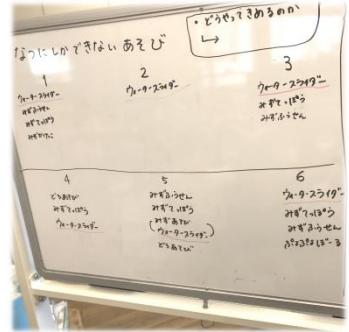 なつにしかできない あそび
・どうやってきめるのか
↳
1
ウォータースライダー
みずふうせん
みずてっぽう
みずかけっこ
2
ウォータースライダー
3
ウォータースライダー
みずてっぽう
みずふうせん
4
どろあそび
みずてっぽう
ウォータースライダー
5
みずふうせん
みずてっぽう
(みずあそび
ウォータースライダー)
どろあそび
6
ウォータースライダー
みずてっぽう
みずふうせん
ぷよぷよぼーる